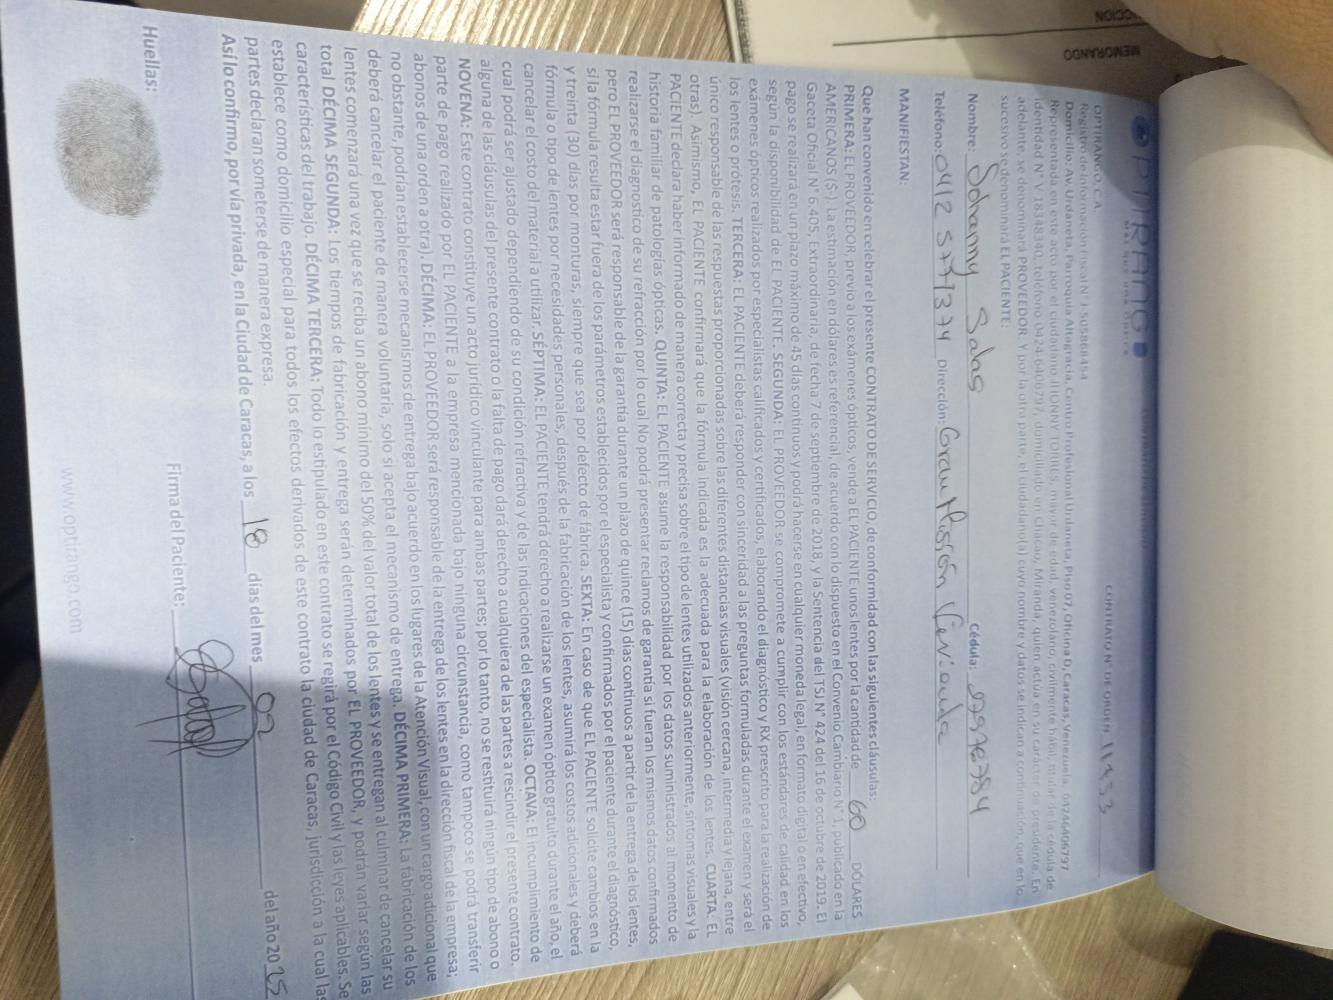 OPTIRANGO
MÁS QUE UNA ÓPTICA
CONTRATO N° DE ORDEN 11353
OPTIRANGO, C.A.
Registro de Información Fiscal N° J-508868454
Domicilio: Av. Urdaneta, Parroquia Altagracia, Centro Profesional Urdaneta, Piso 07, Oficina D, Caracas, Venezuela. 04246406797
Representada en este acto por el ciudadano JHONNY TORRES, mayor de edad, venezolano, civilmente hábil, titular de la cédula de
identidad N° V-18348340, teléfono 0424-6406797, domiciliado en Chacao, Miranda, quien actúa en su carácter de presidente. En
adelante se denominará PROVEEDOR. Y por la otra parte, el ciudadano(a) cuyo nombre y datos se indican a continuación, que en lo
sucesivo se denominará EL PACIENTE:
Nombre: Salas Cédula:
Teléfono: 0412 5771374 Dirección
MANIFIESTAN:
Que han convenido en celebrar el presente CONTRATO DE SERVICIO, de conformidad con las siguientes cláusulas:
PRIMERA: EL PROVEEDOR, previo a los exámenes ópticos, vende a EL PACIENTE unos lentes por la cantidad de 60 DÓLARES
AMERICANOS ($-). La estimación en dólares es referencial, de acuerdo con lo dispuesto en el Convenio Cambiario N° 1, publicado en la
Gaceta Oficial N° 6.405, Extraordinaria, de fecha 7 de septiembre de 2018, y la Sentencia del TSJ N° 424 del 16 de octubre de 2019. El
pago se realizará en un plazo máximo de 45 días continuos y podrá hacerse en cualquier moneda legal, en formato digital o en efectivo,
según la disponibilidad de EL PACIENTE. SEGUNDA: EL PROVEEDOR se compromete a cumplir con los estándares de calidad en los
exámenes ópticos realizados por especialistas calificados y certificados, elaborando el diagnóstico y RX prescrito para la realización de
los lentes o prótesis. TERCERA: EL PACIENTE deberá responder con sinceridad a las preguntas formuladas durante el examen y será el
único responsable de las respuestas proporcionadas sobre las diferentes distancias visuales (visión cercana, intermedia y lejana, entre
otras). Asimismo, EL PACIENTE confirmará que la fórmula indicada es la adecuada para la elaboración de los lentes. CUARTA: EL
PACIENTE declara haber informado de manera correcta y precisa sobre el tipo de lentes utilizados anteriormente, síntomas visuales y la
historia familiar de patologías ópticas. QUINTA: EL PACIENTE asume la responsabilidad por los datos suministrados al momento de
realizarse el diagnostico de su refracción por lo cual No podrá presentar reclamos de garantía si fueran los mismos datos confirmados
pero EL PROVEEDOR será responsable de la garantía durante un plazo de quince (15) días continuos a partir de la entrega de los lentes,
si la fórmula resulta estar fuera de los parámetros establecidos por el especialista y confirmados por el paciente durante el diagnóstico,
y treinta (30) días por monturas, siempre que sea por defecto de fábrica. SEXTA: En caso de que EL PACIENTE solicite cambios en la
fórmula o tipo de lentes por necesidades personales, después de la fabricación de los lentes, asumirá los costos adicionales y deberá
cancelar el costo del material a utilizar. SÉPTIMA: EL PACIENTE tendrá derecho a realizarse un examen óptico gratuito durante el año, el
cual podrá ser ajustado dependiendo de su condición refractiva y de las indicaciones del especialista. OCTAVA: El incumplimiento de
alguna de las cláusulas del presente contrato o la falta de pago dará derecho a cualquiera de las partes a rescindir el presente contrato.
NOVENA: Este contrato constituye un acto jurídico vinculante para ambas partes; por lo tanto, no se restituirá ningún tipo de abono o
parte de pago realizado por EL PACIENTE a la empresa mencionada bajo ninguna circunstancia, como tampoco se podrá transferir
abonos de una orden a otra). DÉCIMA: EL PROVEEDOR será responsable de la entrega de los lentes en la dirección fiscal de la empresa;
no obstante, podrían establecerse mecanismos de entrega bajo acuerdo en los lugares de la Atención Visual, con un cargo adicional que
deberá cancelar el paciente de manera voluntaria, solo si acepta el mecanismo de entrega. DÉCIMA PRIMERA: La fabricación de los
lentes comenzará una vez que se reciba un abono mínimo del 50% del valor total de los lentes y se entregan al culminar de cancelar su
total DÉCIMA SEGUNDA: Los tiempos de fabricación y entrega serán determinados por EL PROVEEDOR, y podrán variar según las
características del trabajo. DÉCIMA TERCERA: Todo lo estipulado en este contrato se regirá por el Código Civil y las leyes aplicables. Se
establece como domicilio especial para todos los efectos derivados de este contrato la ciudad de Caracas, jurisdicción a la cual las
partes declaran someterse de manera expresa.
Así lo confirmo, por vía privada, en la Ciudad de Caracas, a los 18 días del mes 02 del año 2025
Huellas: Firma del Paciente:
www.optirango.com
MEMORANDO